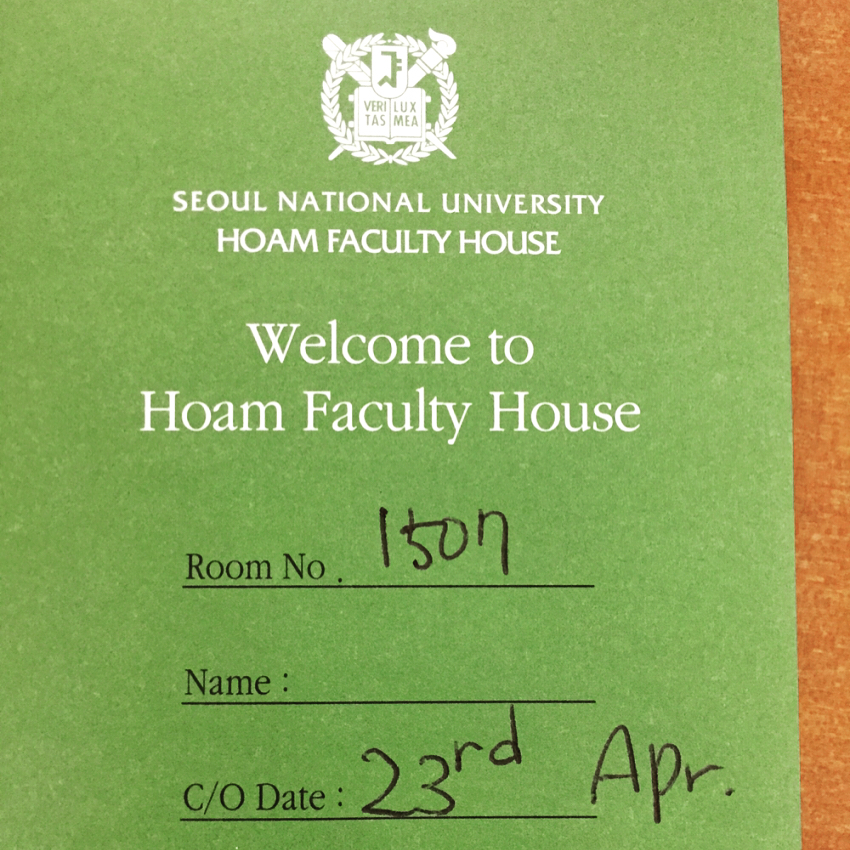 VERI LUX
TAS MEA
SEOUL NATIONAL UNIVERSITY
HOAM FACULTY HOUSE
Welcome to
Hoam Faculty House
Room No . 1507
Name :
C/O Date : 23rd Apr.